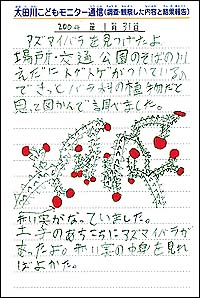 太田川こどもモニター通信（調査・観察した内容と結果報告）
2004年1月31日
アズマイバラを見つけたよ
場所・交通公園のそばの川
えだにトゲトゲがついているの
できっとバラ科の植物だと
思って図かんで調べました。
赤い実がなっていました。
土手のあちこちにアズマイバラが
あったよ。赤い実の中身を見れ
ばよかた。